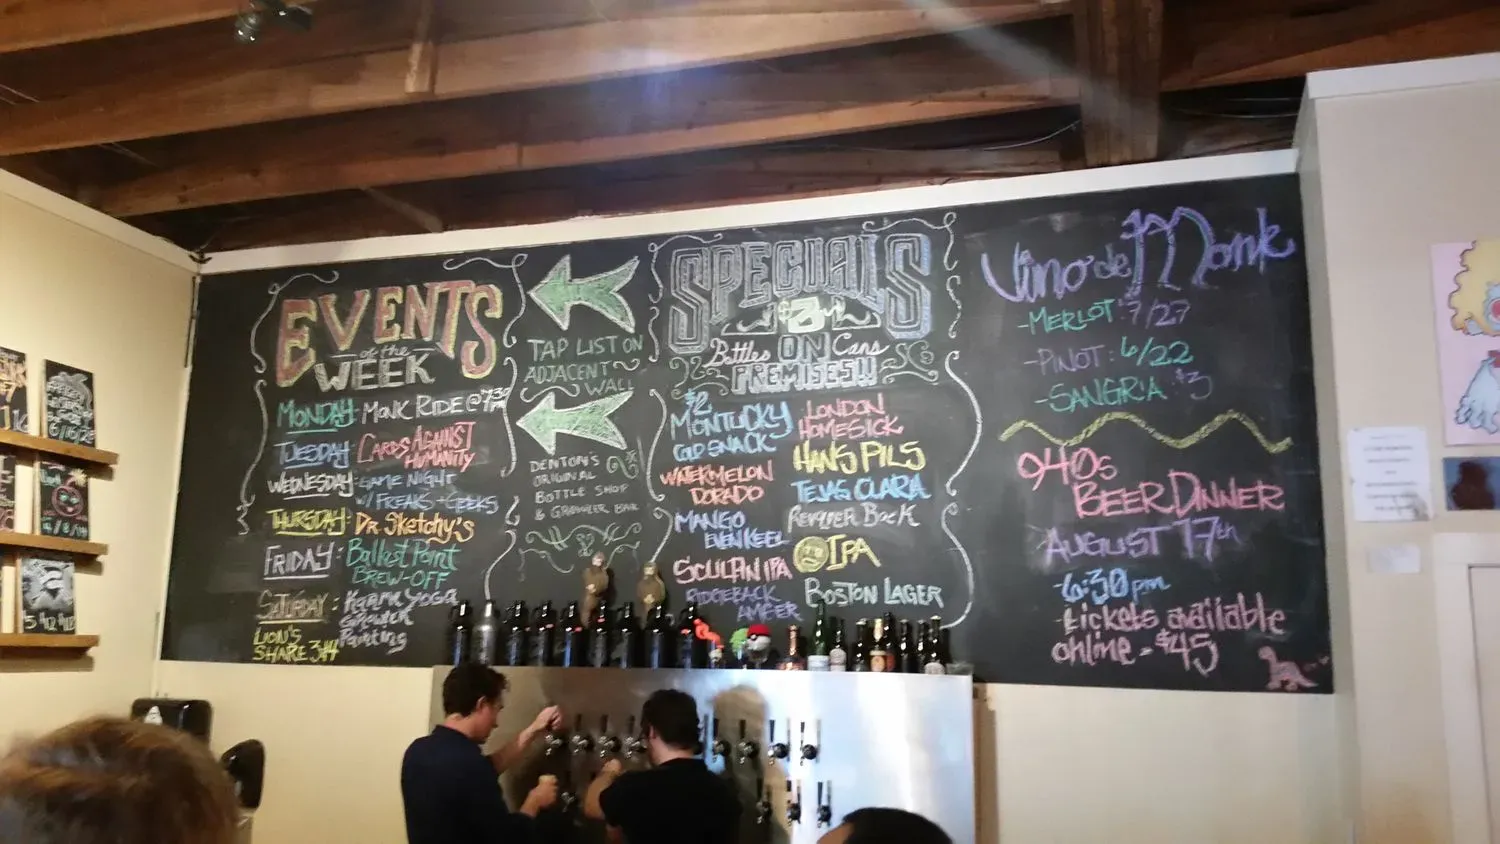 EVENTS
of the
WEEK
MONDAY: MONK RIDE @ 7:30 PM
TUESDAY: CARDS AGAINST
HUMANITY
WEDNESDAY: GAME NIGHT
W/ FREAKS + GEEKS
THURSDAY: DR. SKETCHY'S
FRIDAY: Ballast Point
BREW-OFF
SATURDAY: Karma Yoga
GROWLER
Painting
LION'S
SHARE 3-14
TAP LIST ON
ADJACENT
WALL
DENTON'S
ORIGINAL
BOTTLE SHOP
& GROWLER BAR
SPECIALS
$2
Bottles ON Cans
PREMISES!!
$2
MONTUCKY
COLD SNACK
WATERMELON
DORADO
MANGO
EVEN KEEL
SCULPIN IPA
RIDGEBACK
AMBER
LONDON
HOMESICK
HANS PILS
TEJAS CLARA
REVOLVER BOCK
IPA
BOSTON LAGER
Vino de Monk
-MERLOT: 7/27
-PINOT: 6/22
-SANGRIA $3
940s
BEER DINNER
AUGUST 17th
-6:30 pm
-tickets available
online - $45